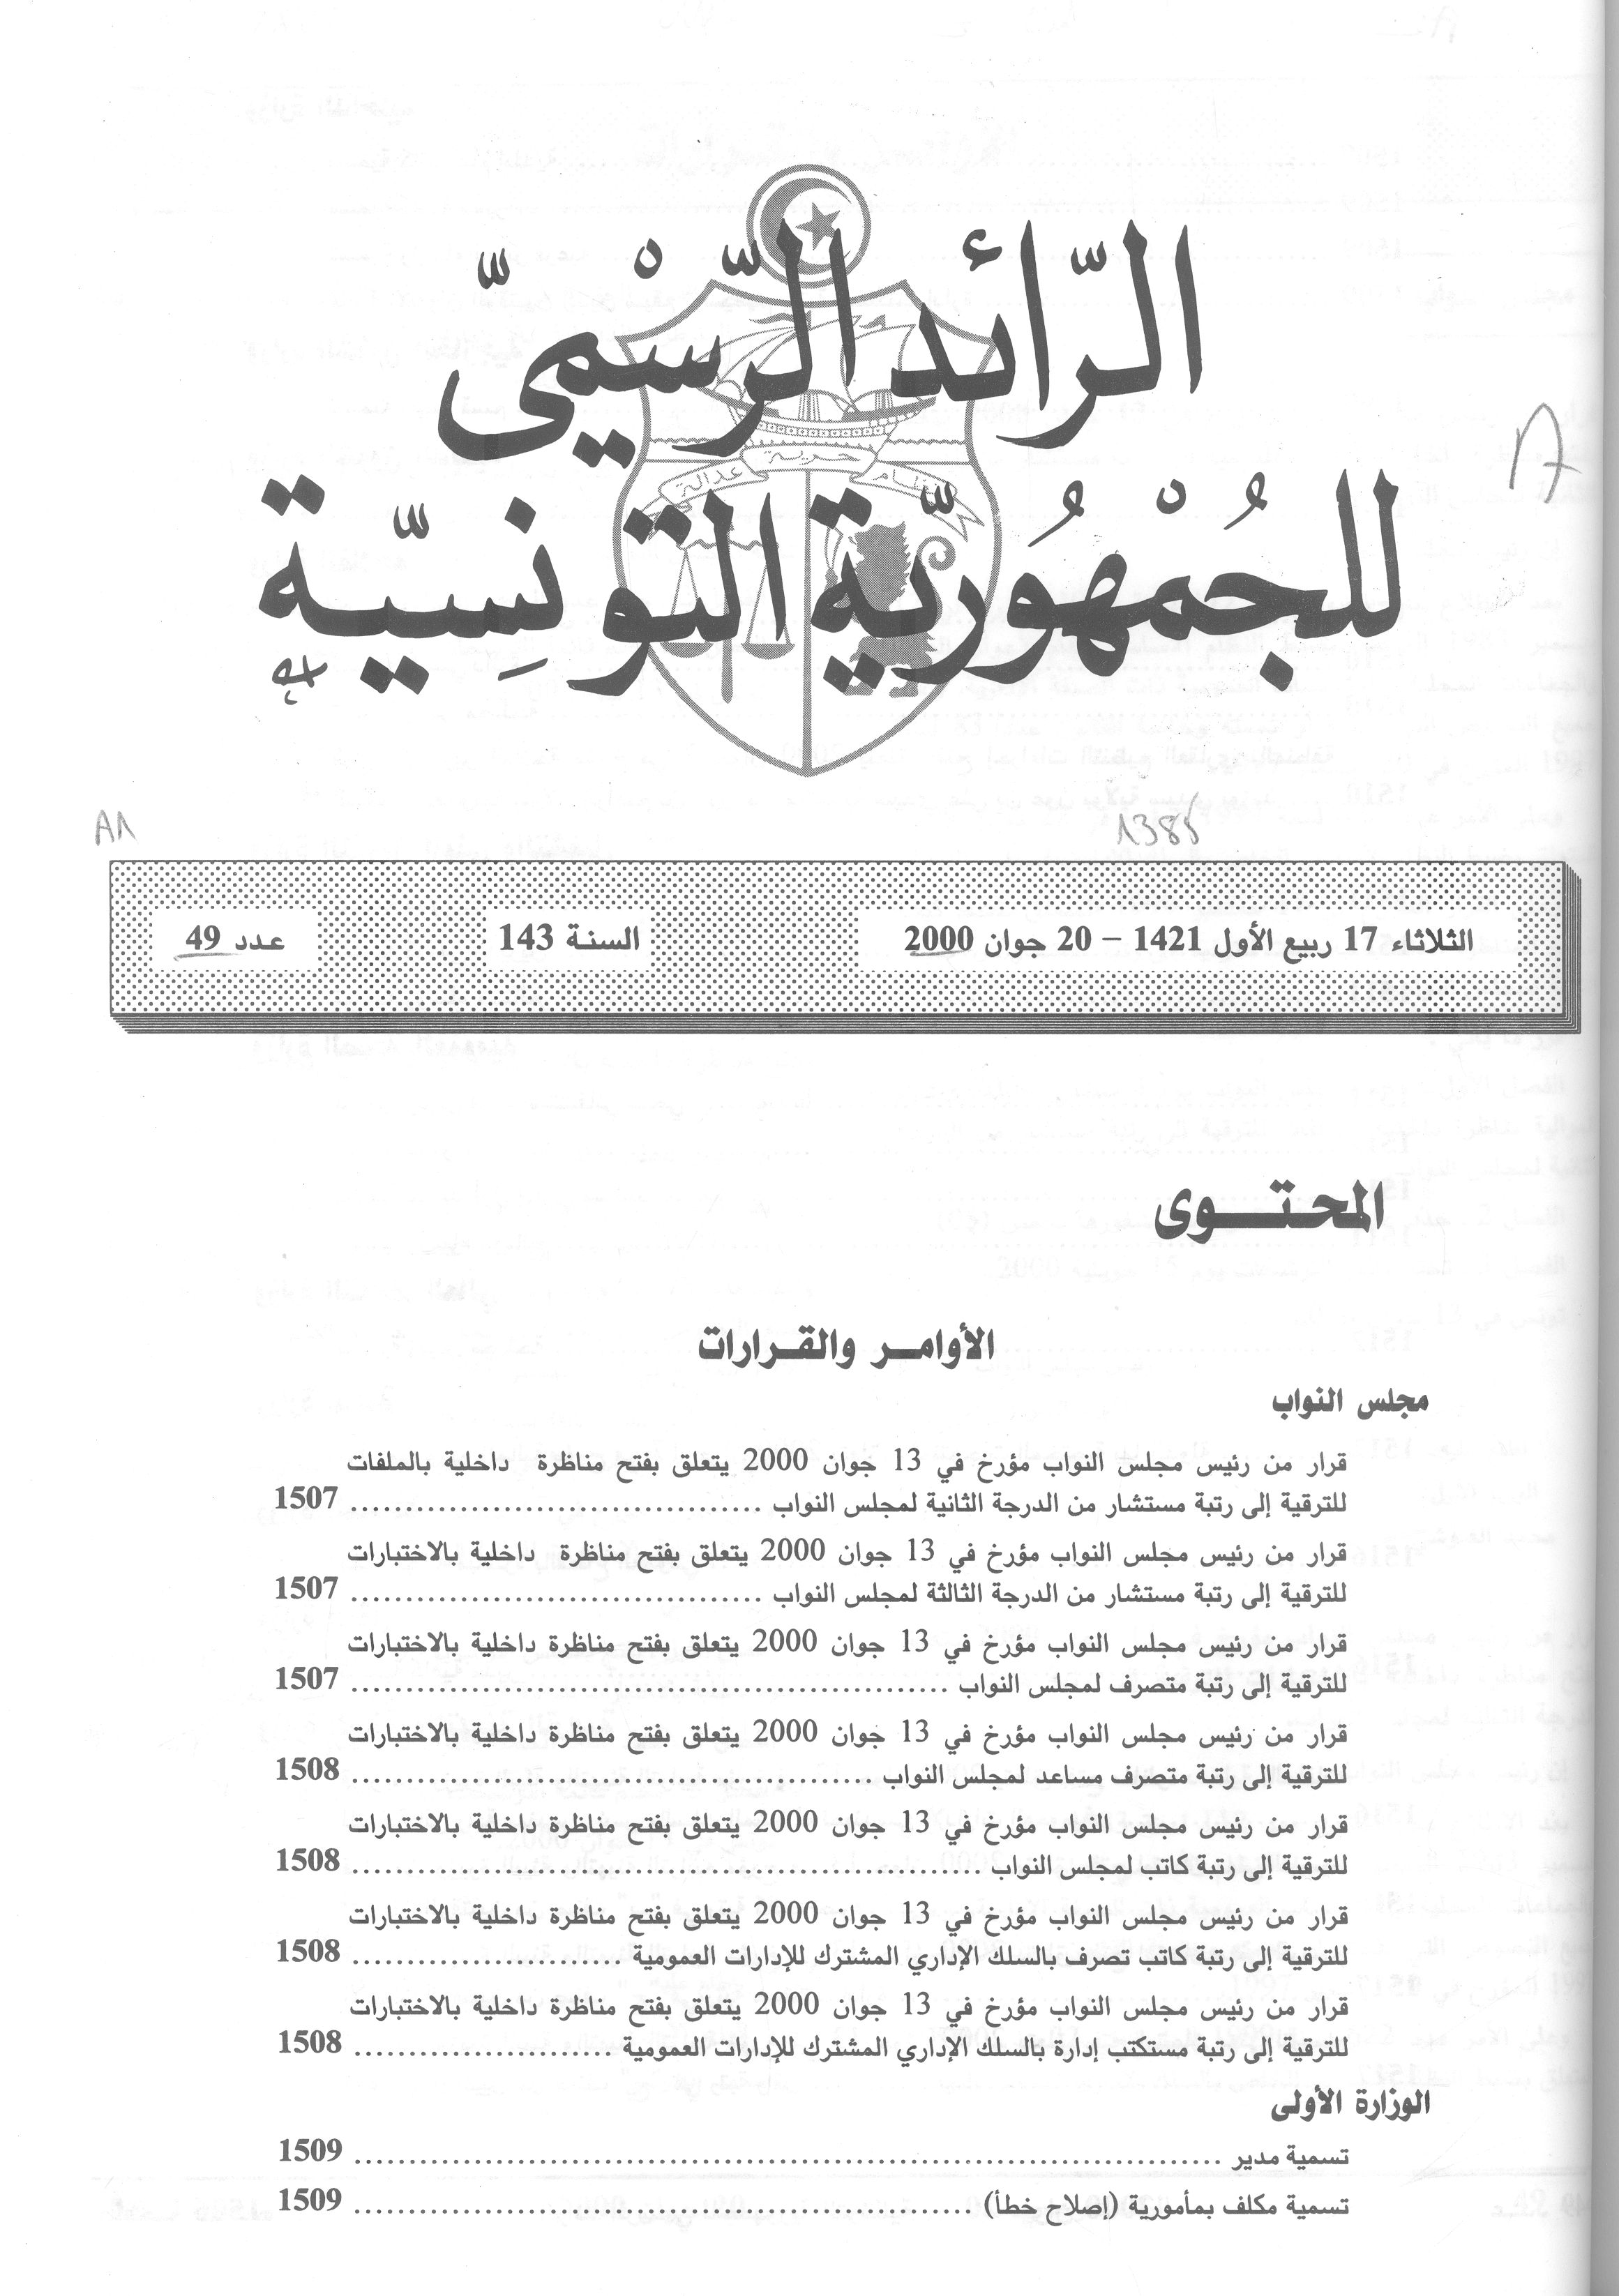 الرّائد الرّسْميّ
نظام حرية عدالة
للجُمْهُوريّة التّونسِيّة
A1
1385
الثلاثاء 17 ربيع الأول 1421 – 20 جوان 2000 السنة 143 عدد 49
المحتوى
الأوامر والقرارات
مجلس النواب
قرار من رئيس مجلس النواب مؤرخ في 13 جوان 2000 يتعلق بفتح مناظرة داخلية بالملفات
للترقية إلى رتبة مستشار من الدرجة الثانية لمجلس النواب ........................................ 1507
قرار من رئيس مجلس النواب مؤرخ في 13 جوان 2000 يتعلق بفتح مناظرة داخلية بالاختبارات
للترقية إلى رتبة مستشار من الدرجة الثالثة لمجلس النواب ........................................ 1507
قرار من رئيس مجلس النواب مؤرخ في 13 جوان 2000 يتعلق بفتح مناظرة داخلية بالاختبارات
للترقية إلى رتبة متصرف لمجلس النواب ........................................................ 1507
قرار من رئيس مجلس النواب مؤرخ في 13 جوان 2000 يتعلق بفتح مناظرة داخلية بالاختبارات
للترقية إلى رتبة متصرف مساعد لمجلس النواب ................................................ 1508
قرار من رئيس مجلس النواب مؤرخ في 13 جوان 2000 يتعلق بفتح مناظرة داخلية بالاختبارات
للترقية إلى رتبة كاتب لمجلس النواب .......................................................... 1508
قرار من رئيس مجلس النواب مؤرخ في 13 جوان 2000 يتعلق بفتح مناظرة داخلية بالاختبارات
للترقية إلى رتبة كاتب تصرف بالسلك الإداري المشترك للإدارات العمومية .......................... 1508
قرار من رئيس مجلس النواب مؤرخ في 13 جوان 2000 يتعلق بفتح مناظرة داخلية بالاختبارات
للترقية إلى رتبة مستكتب إدارة بالسلك الإداري المشترك للإدارات العمومية ......................... 1508
الوزارة الأولى
تسمية مدير ................................................................................ 1509
تسمية مكلف بمأمورية (إصلاح خطأ) .......................................................... 1509